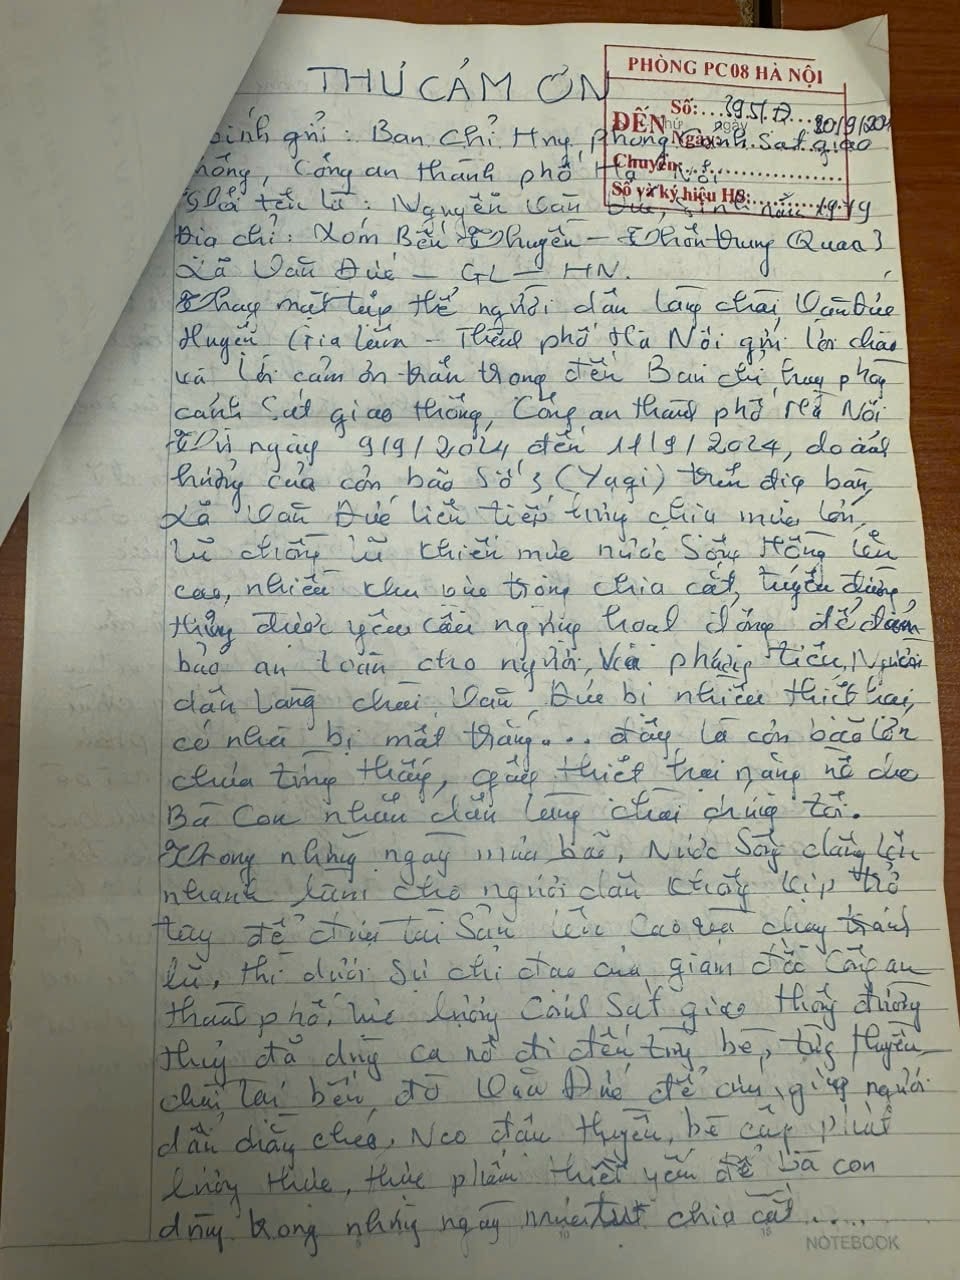 THƯ CẢM ƠN
PHÒNG PC08 HÀ NỘI
ĐẾN Số:
Ngày: 20/9/202
Chuyển:
Số và ký hiệu HS:
Kính gửi: Ban Chỉ Huy phòng Cảnh Sát giao
thông, Công an thành phố Hà Nội
Tôi tên là: Nguyễn Văn Đức, sinh năm 1979
Địa chỉ: Xóm Bến Thuyền – Thôn trung Quan 3
Xã Văn Đức – GL – HN.
Thay mặt tập thể người dân làng chài, Văn Đức
Huyện Gia Lâm – Thành phố Hà Nội gửi lời chào
và lời cảm ơn trân trọng đến Ban chỉ huy phòng
cảnh sát giao thông, Công an thành phố Hà Nội
Từ ngày 9/9/2024 đến 11/9/2024, do ảnh
hưởng của cơn bão số 3 (Yagi) trên địa bàn,
Xã Văn Đức liên tiếp hứng chịu mưa lớn,
lũ chồng lũ khiến mực nước Sông Hồng lên
cao, nhiều khu vực trong chia cắt, tuyến đường
thủy được yêu cầu ngừng hoạt động để đảm
bảo an toàn cho người, và phương tiện, Người
dân Làng chài, Văn Đức bị nhiều thiệt hại,
có nhà bị mất trắng... đây là cơn bão lớn
chưa từng thấy, gây thiệt hại nặng nề cho
Bà Con nhân dân làng chài chúng tôi.
Trong những ngày mưa bão, Nước Sông dâng lên
nhanh làm cho người dân không kịp trở
tay để đưa tài Sản lên Cao và chạy tránh
lũ, thì dưới sự chỉ đạo của giám đốc Công an
thành phố, lực lượng Cảnh Sát giao thông đường
thủy đã dùng ca nô đi đến từng bè, từng thuyền
chài tại bến đò Văn Đức để cứu, giúp người
dân chằng chéo, Neo đậu thuyền, bè cấp phát
lương thực, thực phẩm thiết yếu để bà con
dùng trong những ngày mưa chia cắt.....
NOTEBOOK